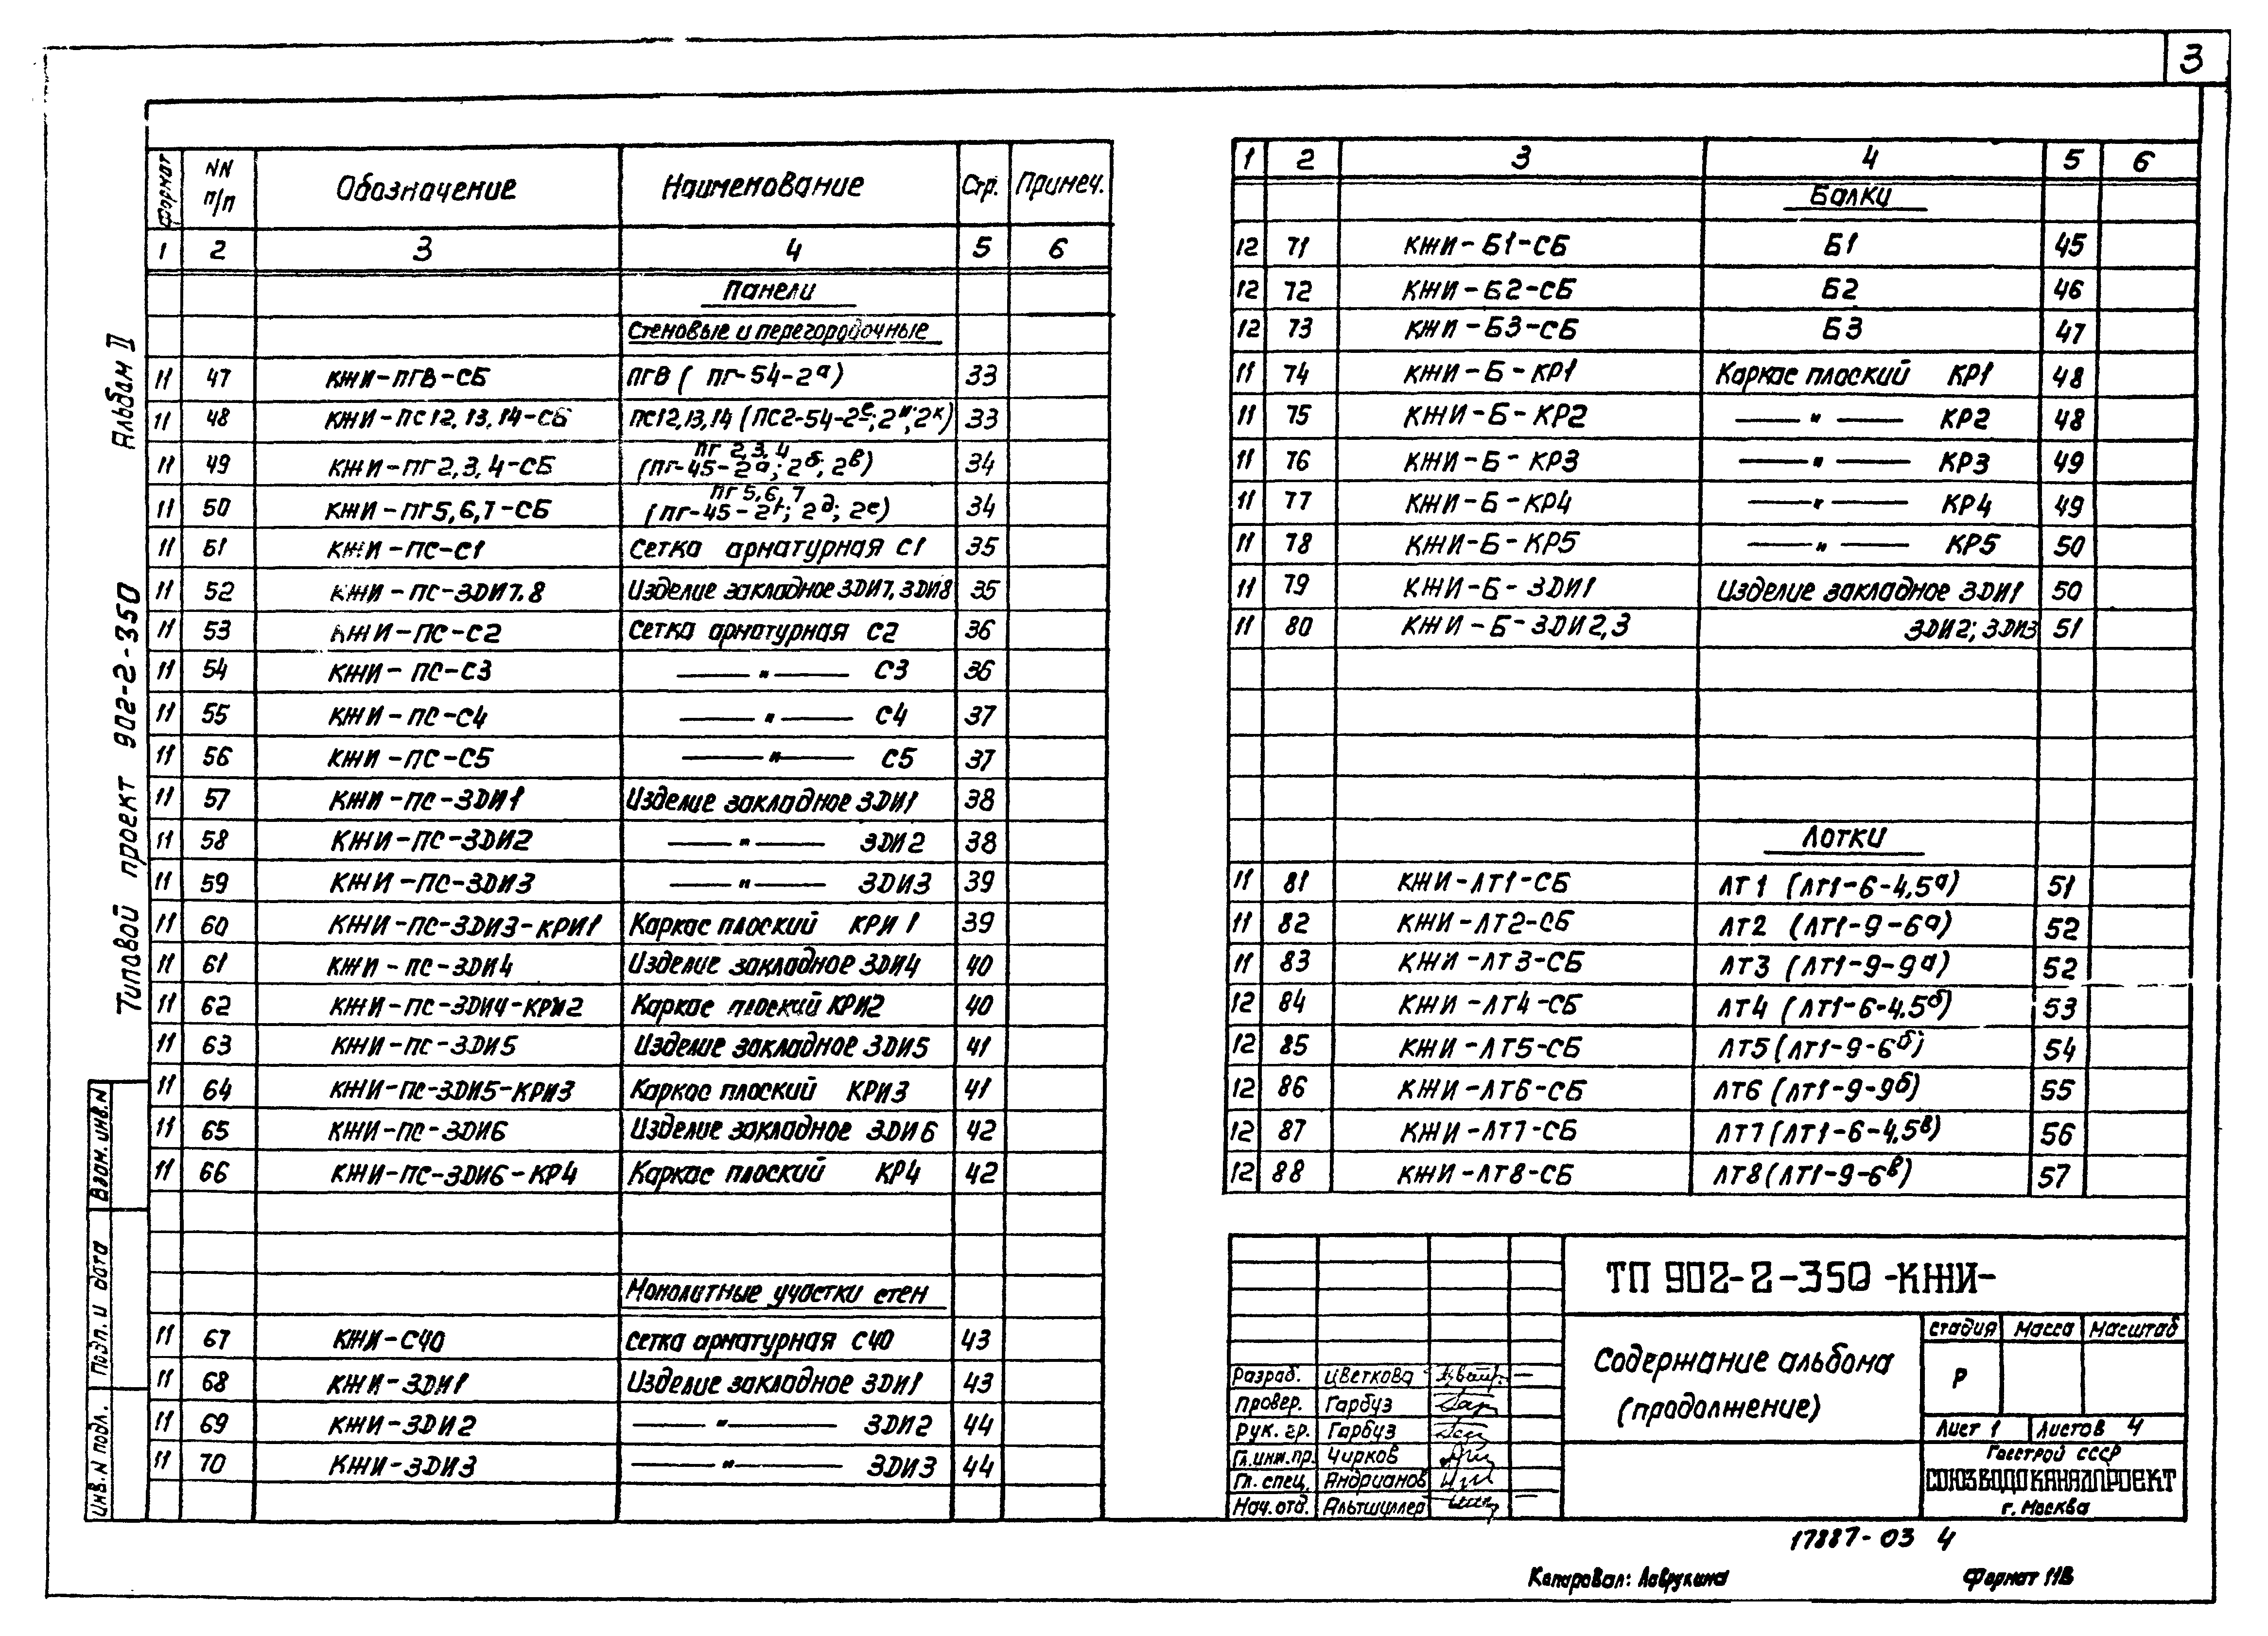 3
Альбом II
Типовой проект 902-2-350
Взам. инв. N
Подп. и дата
Инв. N подл.
Формат | NN п/п | Обозначение | Наименование | Стр. | Примеч.
1 | 2 | 3 | 4 | 5 | 6
Панели
Стеновые и перегородочные
11 | 47 | КЖИ-ПГВ-СБ | ПГВ ( ПГ-54-2а) | 33
11 | 48 | КЖИ-ПС12,13,14-СБ | ПС12,13,14 (ПС2-54-2е; 2и; 2к) | 33
11 | 49 | КЖИ-ПГ2,3,4-СБ | ПГ 2,3,4 (ПГ-45-2а; 2б; 2в) | 34
11 | 50 | КЖИ-ПГ5,6,7-СБ | ПГ 5,6,7 (ПГ-45-2г; 2д; 2е) | 34
11 | 51 | КЖИ-ПС-С1 | Сетка арматурная С1 | 35
11 | 52 | КЖИ-ПС-ЗДИ7.8 | Изделие закладное ЗДИ7, ЗДИ8 | 35
11 | 53 | КЖИ-ПС-С2 | Сетка арматурная С2 | 36
11 | 54 | КЖИ-ПС-С3 | —— " —— С3 | 36
11 | 55 | КЖИ-ПС-С4 | —— " —— С4 | 37
11 | 56 | КЖИ-ПС-С5 | —— " —— С5 | 37
11 | 57 | КЖИ-ПС-ЗДИ1 | Изделие закладное ЗДИ1 | 38
11 | 58 | КЖИ-ПС-ЗДИ2 | —— " —— ЗДИ2 | 38
11 | 59 | КЖИ-ПС-ЗДИ3 | —— " —— ЗДИ3 | 39
11 | 60 | КЖИ-ПС-ЗДИ3-КРИ1 | Каркас плоский КРИ 1 | 39
11 | 61 | КЖИ-ПС-ЗДИ4 | Изделие закладное ЗДИ4 | 40
11 | 62 | КЖИ-ПС-ЗДИ4-КРИ2 | Каркас плоский КРИ2 | 40
11 | 63 | КЖИ-ПС-ЗДИ5 | Изделие закладное ЗДИ5 | 41
11 | 64 | КЖИ-ПС-ЗДИ5-КРИ3 | Каркас плоский КРИ3 | 41
11 | 65 | КЖИ-ПС-ЗДИ6 | Изделие закладное ЗДИ6 | 42
11 | 66 | КЖИ-ПС-ЗДИ6-КР4 | Каркас плоский КР4 | 42
Монолитные участки стен
11 | 67 | КЖИ-С40 | Сетка арматурная С40 | 43
11 | 68 | КЖИ-ЗДИ1 | Изделие закладное ЗДИ1 | 43
11 | 69 | КЖИ-ЗДИ2 | —— " —— ЗДИ2 | 44
11 | 70 | КЖИ-ЗДИ3 | —— " —— ЗДИ3 | 44
1 | 2 | 3 | 4 | 5 | 6
Балки
12 | 71 | КЖИ-Б1-СБ | Б1 | 45
12 | 72 | КЖИ-Б2-СБ | Б2 | 46
12 | 73 | КЖИ-Б3-СБ | Б3 | 47
11 | 74 | КЖИ-Б-КР1 | Каркас плоский КР1 | 48
11 | 75 | КЖИ-Б-КР2 | —— " —— КР2 | 48
11 | 76 | КЖИ-Б-КР3 | —— " —— КР3 | 49
11 | 77 | КЖИ-Б-КР4 | —— " —— КР4 | 49
11 | 78 | КЖИ-Б-КР5 | —— " —— КР5 | 50
11 | 79 | КЖИ-Б-ЗДИ1 | Изделие закладное ЗДИ1 | 50
11 | 80 | КЖИ-Б-ЗДИ2,3 | ЗДИ2; ЗДИ3 | 51
Лотки
11 | 81 | КЖИ-ЛТ1-СБ | ЛТ1 (ЛТ1-6-4,5а) | 51
11 | 82 | КЖИ-ЛТ2-СБ | ЛТ2 (ЛТ1-9-6а) | 52
11 | 83 | КЖИ-ЛТ3-СБ | ЛТ3 (ЛТ1-9-9а) | 52
12 | 84 | КЖИ-ЛТ4-СБ | ЛТ4 (ЛТ1-6-4,5б) | 53
12 | 85 | КЖИ-ЛТ5-СБ | ЛТ5 (ЛТ1-9-6б) | 54
12 | 86 | КЖИ-ЛТ6-СБ | ЛТ6 (ЛТ1-9-9б) | 55
12 | 87 | КЖИ-ЛТ7-СБ | ЛТ7 (ЛТ1-6-4,5в) | 56
12 | 88 | КЖИ-ЛТ8-СБ | ЛТ8 (ЛТ1-9-6в) | 57
ТП 902-2-350-КЖИ-
Содержание альбома
(продолжение)
Стадия | Масса | Масштаб
Р
Лист 1 | Листов 4
Госстрой СССР
СОЮЗВОДОКАНАЛПРОЕКТ
г. Москва
Разраб. Цветкова
Провер. Гарбуз
Рук. гр. Гарбуз
Гл.инж.пр. Чирков
Гл. спец. Андрианов
Нач. отд. Альтшуллер
17887-03 4
Копировал: Лаврухина
Формат 11В